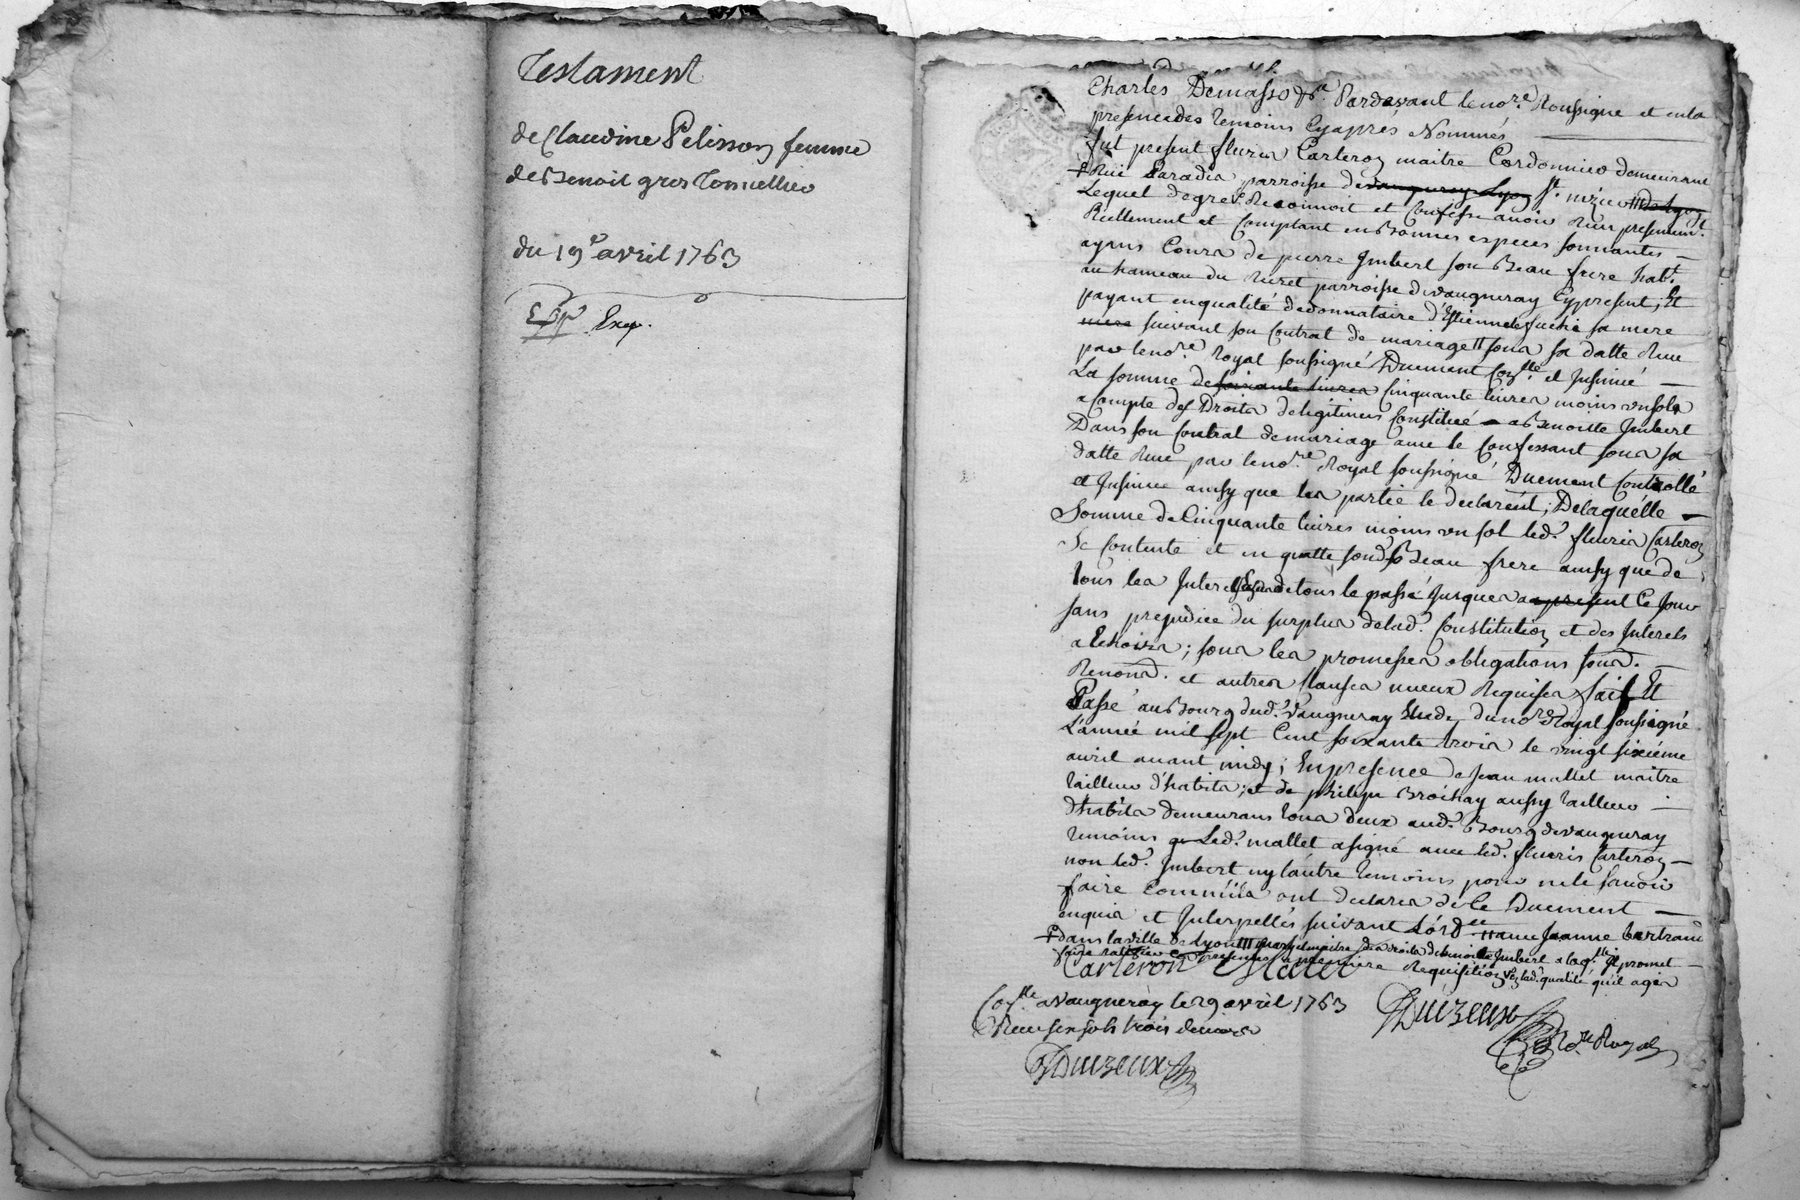 Testament
de Claudine Pelisson femme
de Benoit gros Tonnellier
du 19e avril 1763
Exp.
Charles Demasso &re. Pardevant le nore. soussigné et en la
presence des temoins Cyaprés Nommés
fut present fleuris Carteron maitre Cordonnier demeurant
+ Rüe Paradis parroisse de vaugneray Lyon St. nizier III de Lyon
Lequel de gré Reconnoit et Confesse avoir Reçu presentemt.
Réellement et Comptant en Bonnes especes sonnantes
ayans Cours de pierre Imbert son Beau frere habt.
au hameau du parroisse de vaugneray Cypresent, Et
payant en qualité de donnataire d'Estiennette sa mere
mere suivant son Contrat de mariage II sous sa datte Reçu
par le nore. Royal soussigné Duement Conllé. et Insinué
La somme de soixante livres Cinquante livres moins un sols
a Compte des Droits de legitimes Constitué a Benoitte Imbert
Dans son Contrat de mariage avec le Confessant sous sa
datte Reçu par le nore. Royal soussigné Duement Controllé
et Insinué ainsy que les partie le declarent; De laquélle
Somme de Cinquante livres moins un sol led. fleuris Carteron
Se Contente et en quitte sond. Beau frere ainsy que de
tous les Interets de tous le passé Jusques a apresent Ce Jour
sans prejudice du surplus de lad. Constitution et des Interets
a Echoirs; sous les promesses obligations soud.
Renond. et autres Clauses mieux Requises fait Et
Passé au Bourg dud. Vaugneray Etude du nore Royal soussigné
L'année mil sept Cent soixante trois le vingt sixiéme
avril avant midy; En presence de Jean mallet maitre
tailleur d'habits; et de philipe Bröchay aussy tailleur
d'habits demeurans tous deux aud. Bourg de vaugneray
temoins qu Led. mallet a signé avec led. fleuris Carteron
non led. Imbert ny l'autre temoins pour ne le sçavoir
faire Comm'ils ont declarés de Ce Duement
enquis et Interpellés suivant L'órdce II avec Jeanne bertrand
+ dans la ville de Lyon III mary et maitre des droits de benoitte Imbert a laqlle. Il promet
faire ratifier Ces presentes a premiere Requisition En lad. qualité qu'il agis
Carteron Malet
Conllé a Vaugneray le 29 avrèl 1763
Reçu six sols trois deniers
Duizeux
Duizeux
Nore Royal